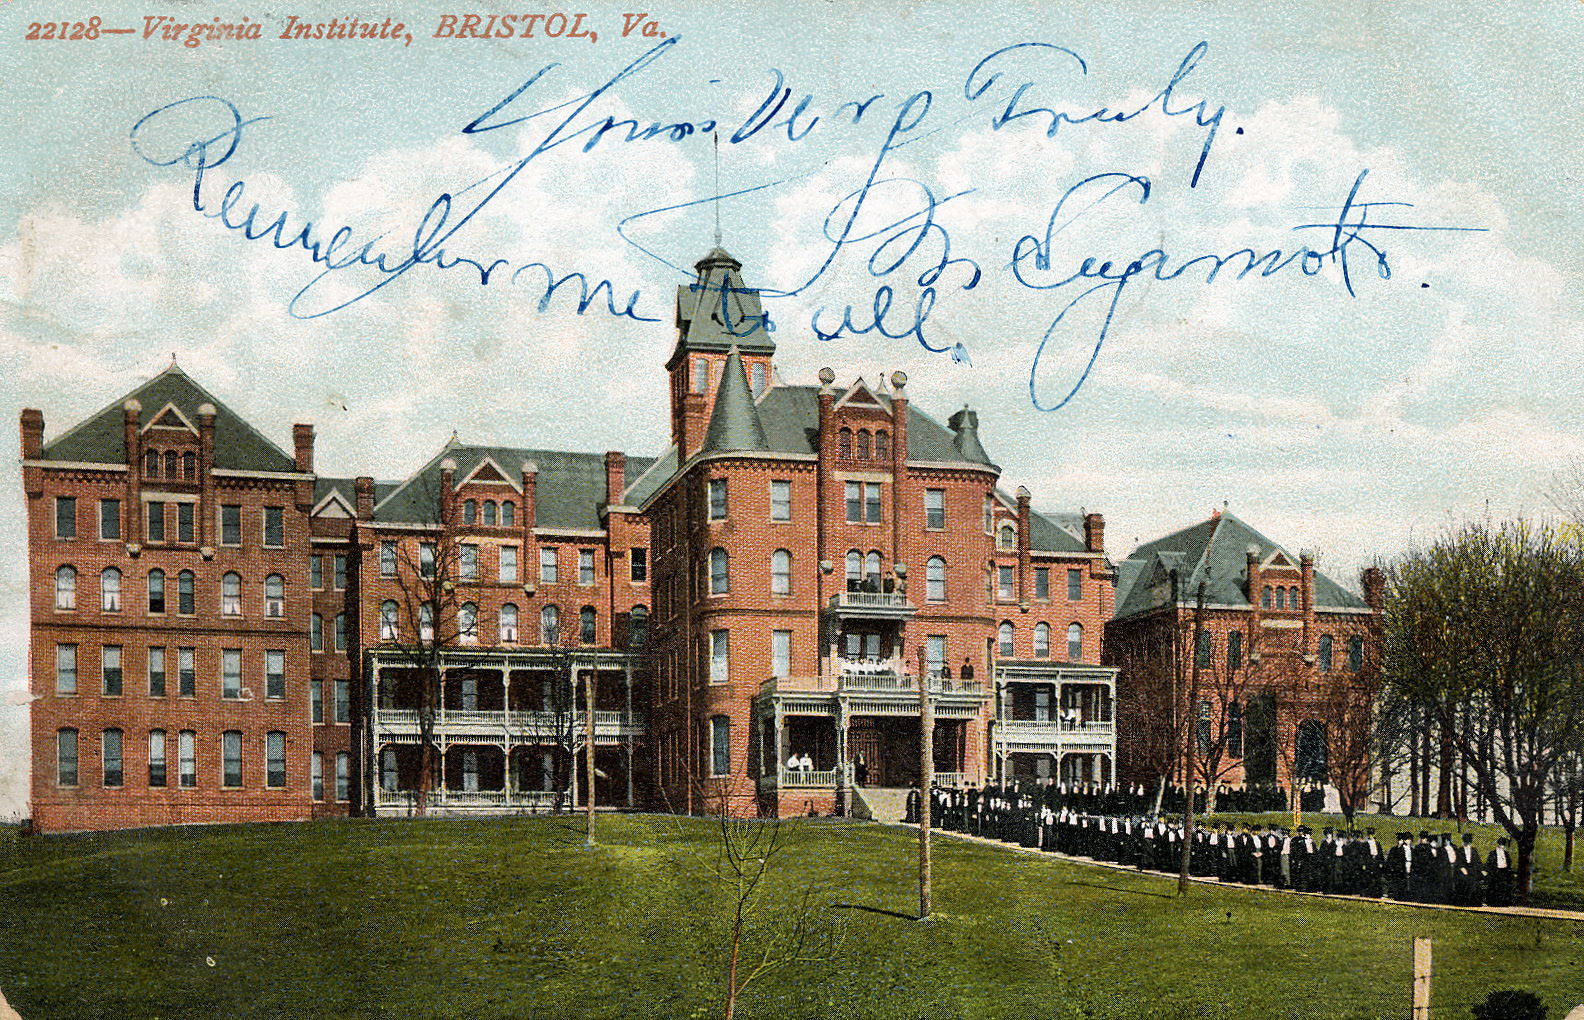 22128—Virginia Institute, BRISTOL, Va.
Yours Very Truly.
Remember me to all.